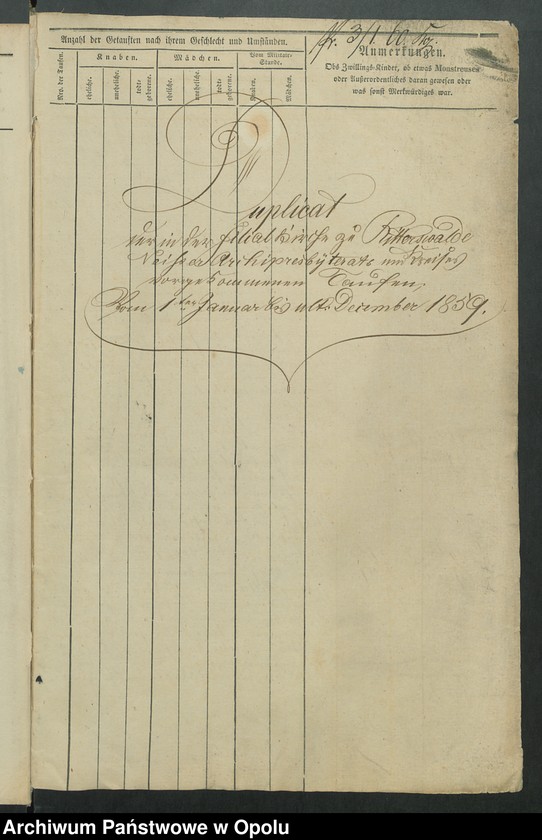 Anzahl der Getauften nach ihrem Geschlecht und Umständen.
Nro. der Taufen.
Knaben.
Mädchen.
Vom Militair-
Stande.
eheliche.
uneheliche.
todt-
geborene.
eheliche.
uneheliche.
todte
geborene.
Knaben.
Mädchen.
3/1 60.
Anmerkungen.
Obs Zwillings-Kinder, ob etwas Monstrouses
oder Außerordentliches daran gewesen oder
was sonst Merkwürdiges war.
Duplicat
der in der Filialkirche zu Ritterswalde
Neisser Archipresbyterats und Kreises
vorgekommenen Taufen,
Vom 1ten Januar bis ult. December 1859.
Archiwum Państwowe w Opolu